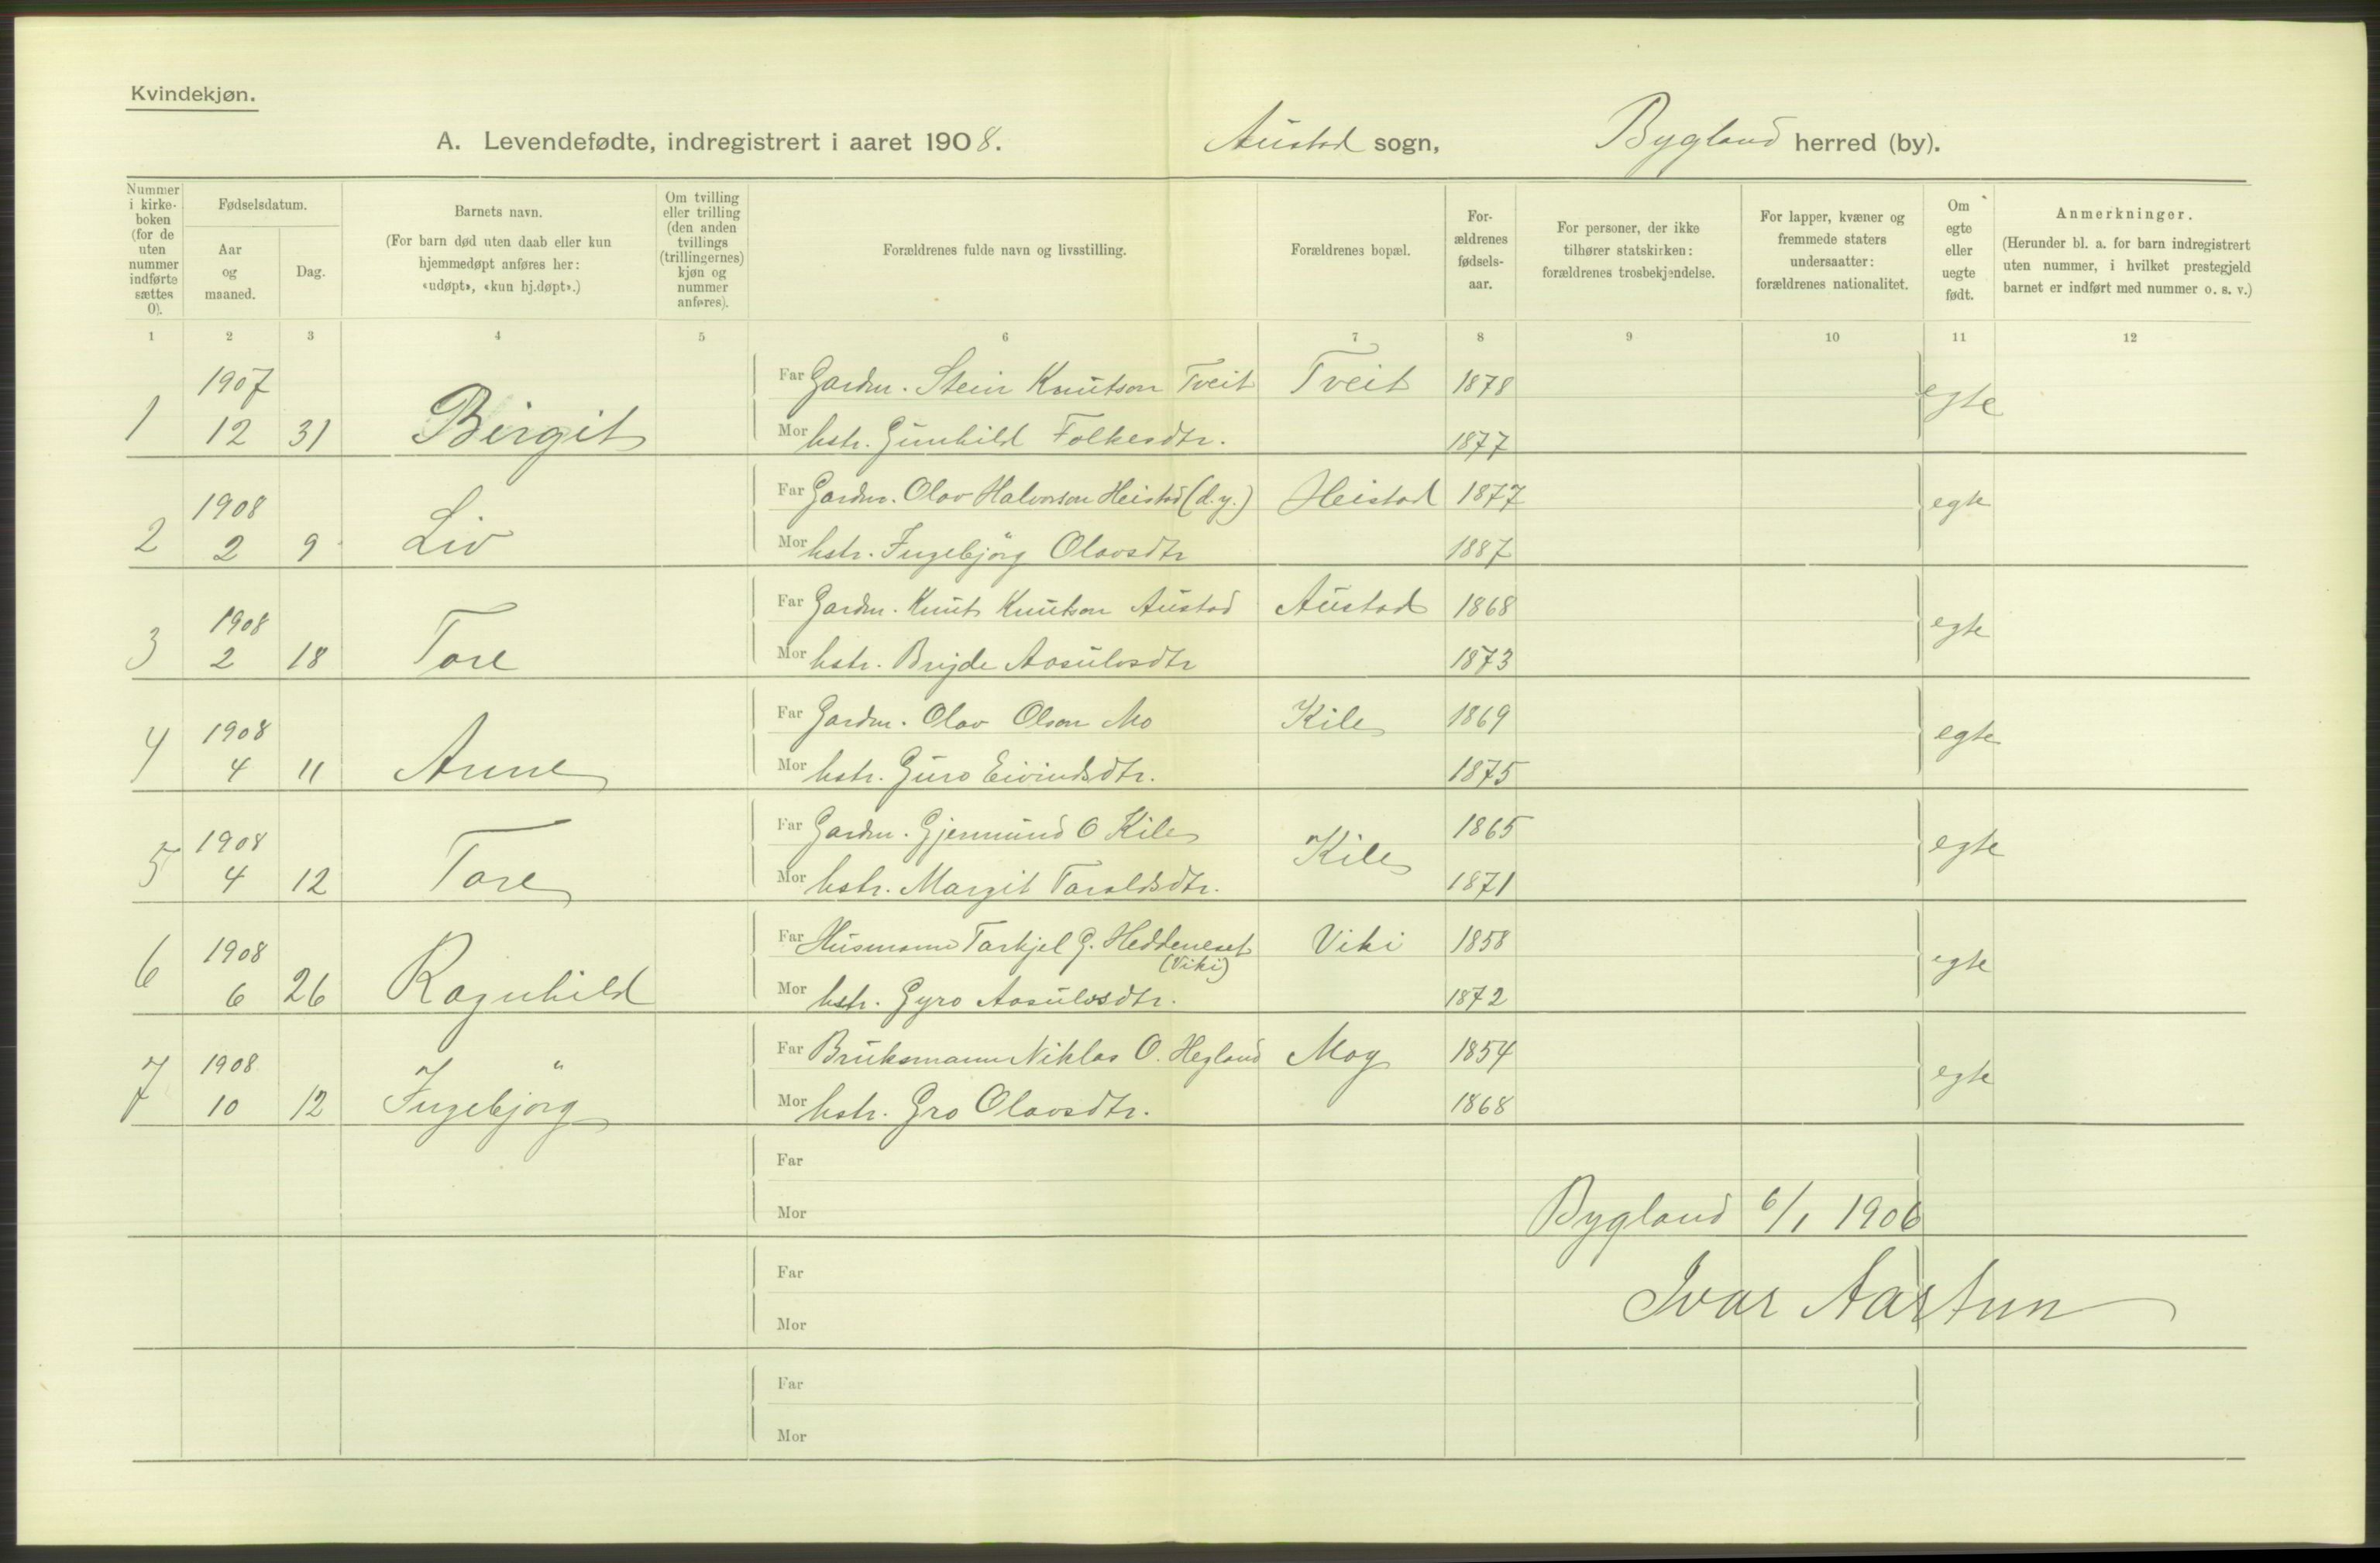 Kvindekjøn.
A. Levendefødte, indregistrert i aaret 1908. Austad sogn, Bygland herred (by).
Nummer i kirke-boken (for de uten nummer indførte sættes 0).
Fødselsdatum.
Aar og maaned.
Dag.
Barnets navn.
(For barn død uten daab eller kun hjemmedøpt anføres her: «udøpt», «kun hj.døpt».)
Om tvilling eller trilling (den anden tvillings (trillingernes) kjøn og nummer anføres).
Forældrenes fulde navn og livsstilling.
Forældrenes bopæl.
For-ældrenes fødsels-aar.
For personer, der ikke tilhører statskirken: forældrenes trosbekjendelse.
For lapper, kvæner og fremmede staters undersaatter: forældrenes nationalitet.
Om egte eller uegte født.
Anmerkninger.
(Herunder bl. a. for barn indregistrert uten nummer, i hvilket prestegjeld barnet er indført med nummer o. s. v.)
1 2 3 4 5 6 7 8 9 10 11 12
1907 Far Gardm. Stein Knutson Tveit Tveit 1878 egte
1 12 31 Birgit Mor hstr. Gunhild Folkesdtr. 1877
1908 Far Gardm. Olav Halvorson Heistad (d.y.) Heistad 1877 egte
2 2 9 Liv Mor hstr. Ingebjörg Olavsdtr 1887
1908 Far Gardm. Knut Knutson Austad Austad 1868 egte
3 2 18 Tore Mor hstr. Brijde Aasulvsdtr 1873
1908 Far Gardm. Olav Olson Mo Kile 1869 egte
4 4 11 Anne Mor hstr. Guro Eivindsdtr. 1875
1908 Far Gardm. Gjermund O Kile Kile 1865 egte
5 4 12 Tore Mor hstr. Margit Taraldsdtr. 1871
1908 Far Husmann Tarkjel G. Heddeneset (Viki) Viki 1858 egte
6 6 26 Ragnhild Mor hstr. Gyro Aasulvsdtr. 1872
1908 Far Bruksmann Niklas O. Hegland Moy 1854 egte
7 10 12 Ingebjörg Mor hstr. Gro Olavsdtr. 1868
Far
Mor
Bygland 6/1 1906
Far
Ivar Aartun
Mor
Far
Mor